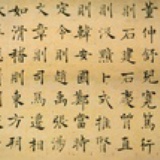 董仲舒兒寬篤行
則石建石慶質直
則汲黯卜式推賢
則韓安國鄭當時
定令則趙禹張湯
文章則司馬遷相
如滑稽則東方朔